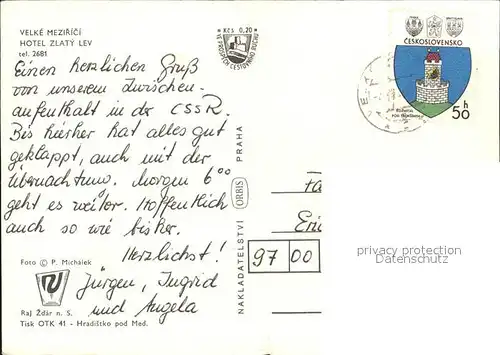 VELKÉ MEZIŘÍČÍ
HOTEL ZLATÝ LEV
tel. 2681
Einen herzlichen Gruß
von unserem Zwischen-
aufenthalt in der CSSR.
Bis hierher hat alles gut
geklappt, auch mit der
Übernachtung. Morgen 6⁰⁰
geht es weiter. Hoffentlich
auch so wie bisher.
Herzlichst!
Jürgen, Ingrid
und Angela
Foto © P. Michálek
Raj Žďár n. S.
Tisk OTK 41 - Hradištko pod Med.
NAKLADATELSTVÍ ORBIS PRAHA
Kčs 0,20
VE PROSPĚCH CESTOVNÍHO RUCHU
ČESKOSLOVENSKO
50 h
Fa
Eric
97 00
privacy protection
Datenschutz